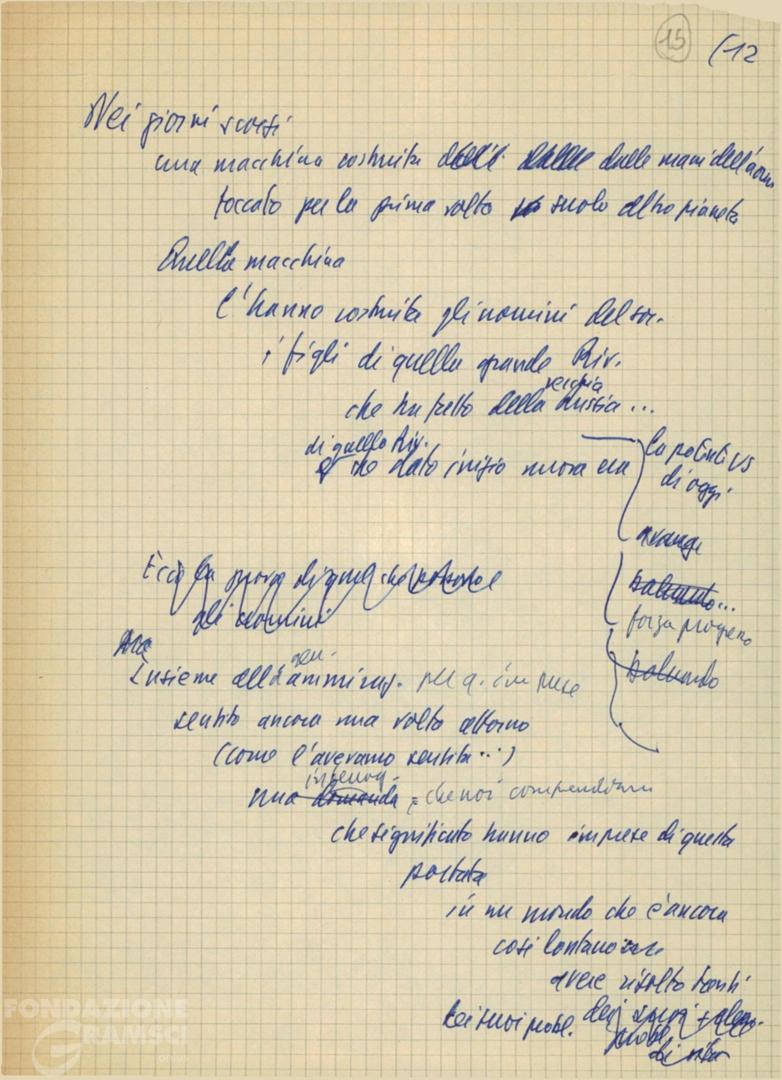 15 (12
Nei giorni scorsi
una macchina costruita dalle mani dell'uomo
toccato per la prima volta suolo altro pianeta
Quella macchina
l'hanno costruita gli uomini del soc.
i figli di quella grande Riv.
vecchia
che ha fatto della Russia...
di quella Riv.
che dato inizio nuova era
la potente US
di oggi
avang
forza progresso
Ecco la prova di quel che
gli uomini
Ma
Insieme all'ammiraz. per q. imprese
sentito ancora una volta attorno
(come l'avevamo sentita...)
interrog.
una domanda = che noi comprendiamo
che significato hanno imprese di questa
portata
in un mondo che è ancora
così lontano
avere risolto tanti
dei suoi probl.
probl.
di vita
FONDAZIONE
GRAMSCI